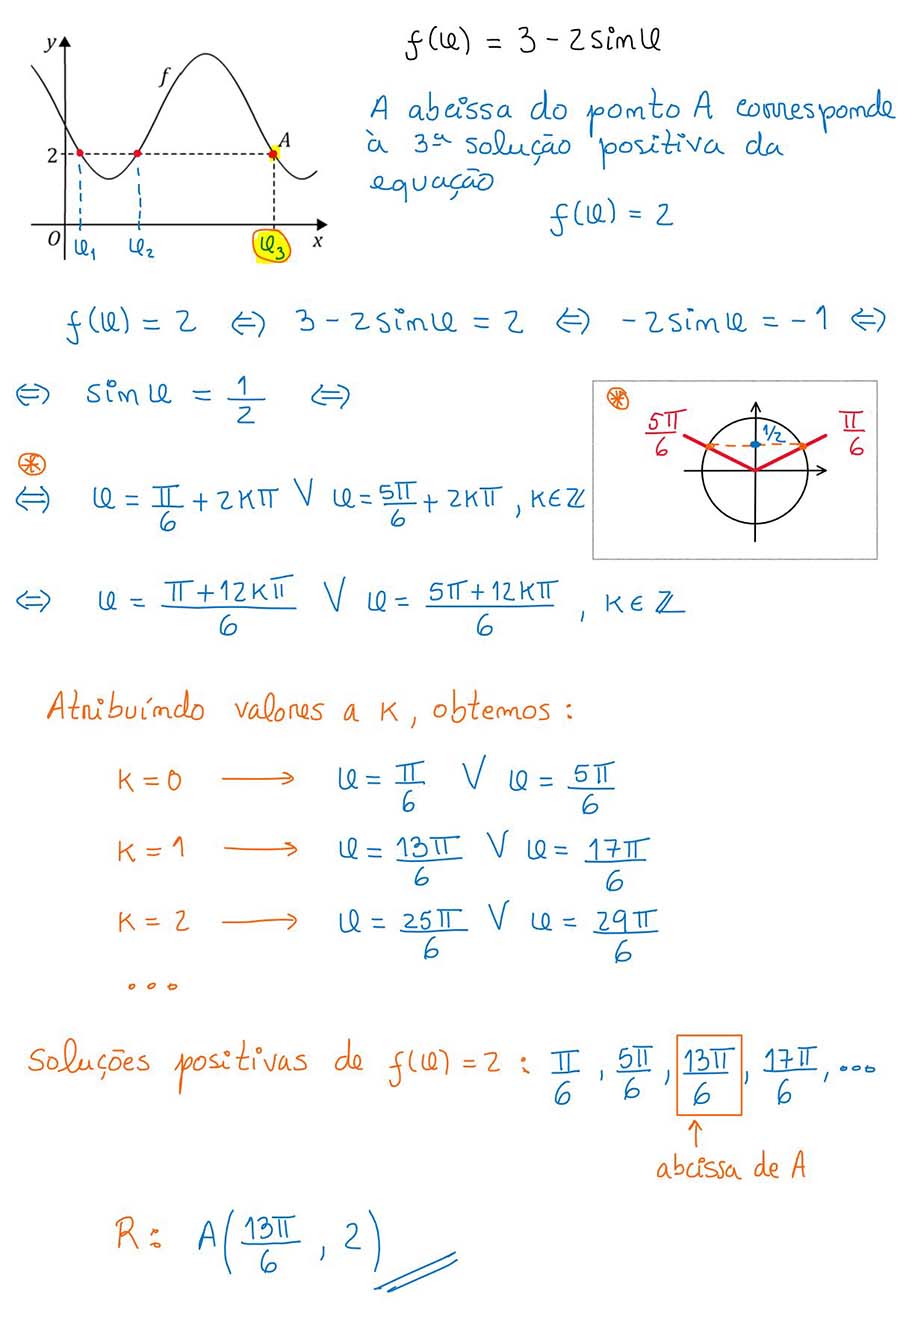 y
f
A
2
O x₁ x₂ x₃ x
f(x) = 3 - 2sin x
A abcissa do ponto A corresponde
à 3ª solução positiva da
equação
f(x) = 2
f(x) = 2 ⇔ 3 - 2sin x = 2 ⇔ -2sin x = -1 ⇔
⇔ sin x = 1/2 ⇔
⊛
5π/6 1/2 π/6
⊛
⇔ x = π/6 + 2kπ ∨ x = 5π/6 + 2kπ , k∈ℤ
⇔ x = (π+12kπ)/6 ∨ x = (5π+12kπ)/6 , k∈ℤ
Atribuíndo valores a k, obtemos:
k = 0 ⟶ x = π/6 ∨ x = 5π/6
k = 1 ⟶ x = 13π/6 ∨ x = 17π/6
k = 2 ⟶ x = 25π/6 ∨ x = 29π/6
...
Soluções positivas de f(x) = 2 : π/6 , 5π/6 , 13π/6 , 17π/6 , ...
↑
abcissa de A
R: A(13π/6 , 2)